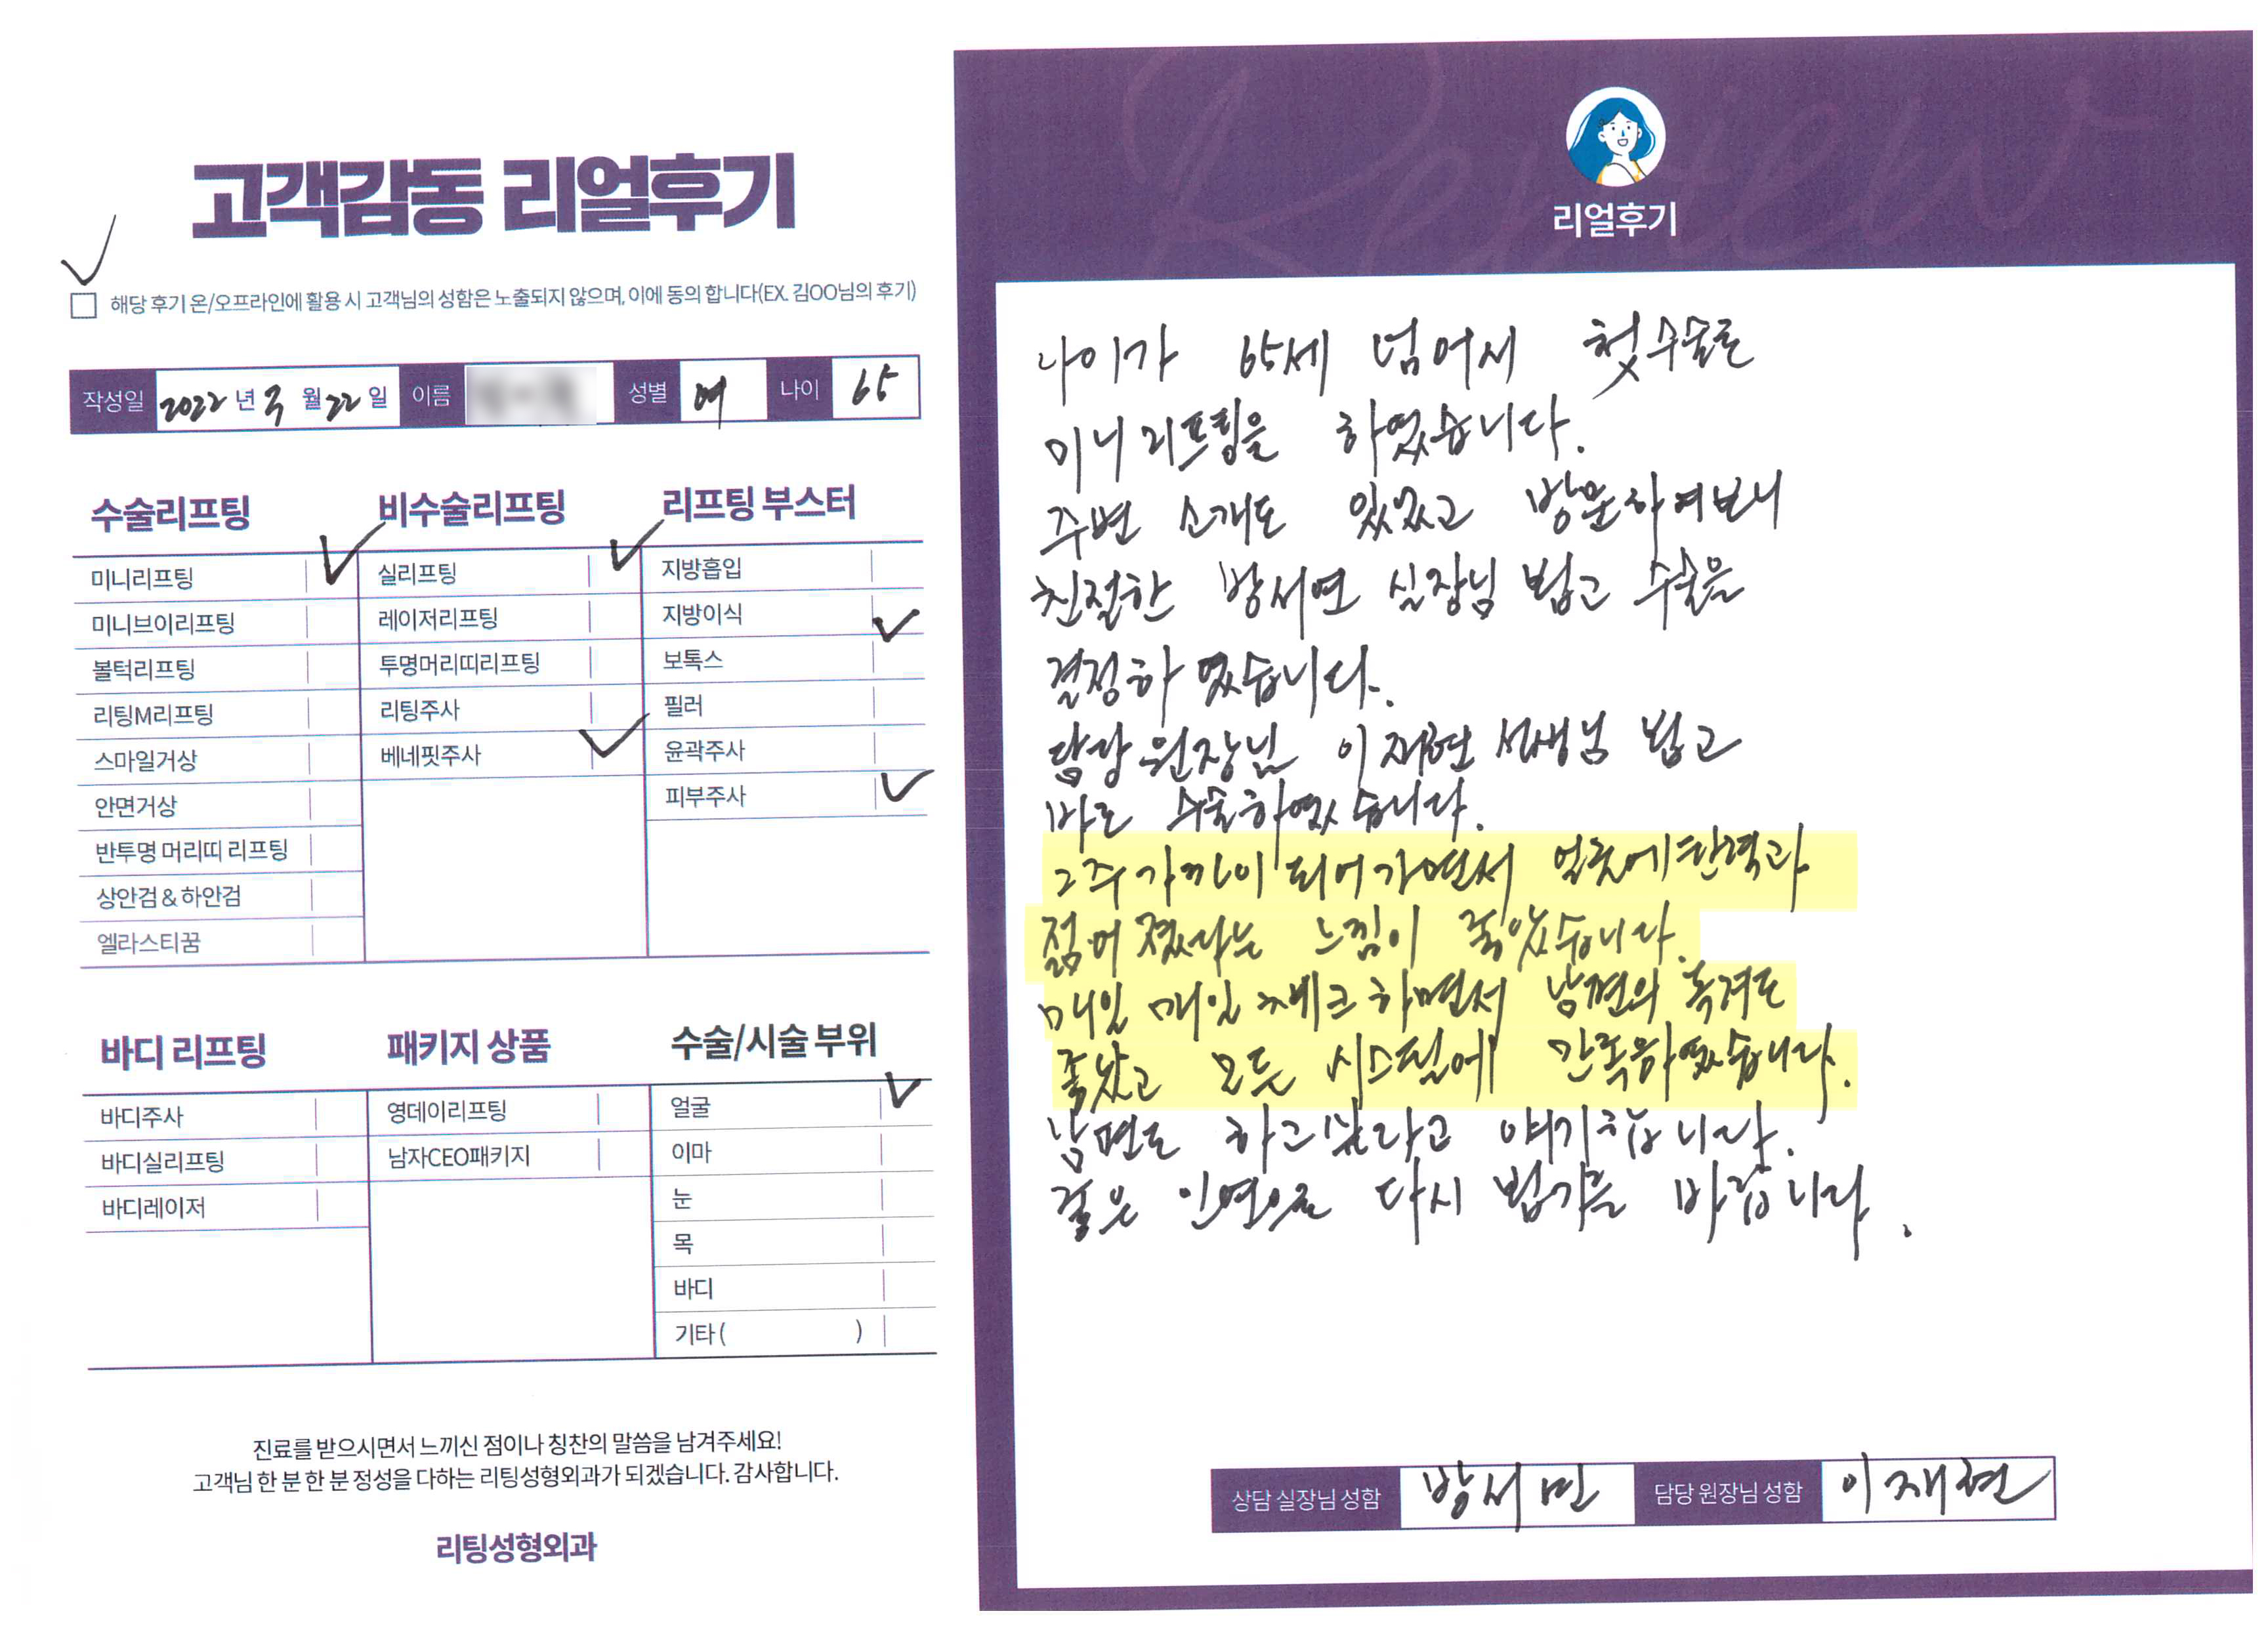 고객감동 리얼후기
해당 후기 온/오프라인에 활용 시 고객님의 성함은 노출되지 않으며, 이에 동의 합니다(EX. 김OO님의 후기)
작성일 2022 년 3 월 22 일 이름 성별 여 나이 65
수술리프팅
미니리프팅
미니브이리프팅
볼턱리프팅
리팅M리프팅
스마일거상
안면거상
반투명 머리띠 리프팅
상안검 & 하안검
엘라스티꿈
비수술리프팅
실리프팅
레이저리프팅
투명머리띠리프팅
리팅주사
베네핏주사
리프팅 부스터
지방흡입
지방이식
보톡스
필러
윤곽주사
피부주사
바디 리프팅
바디주사
바디실리프팅
바디레이저
패키지 상품
영데이리프팅
남자CEO패키지
수술/시술 부위
얼굴
이마
눈
목
바디
기타 ( )
진료를 받으시면서 느끼신 점이나 칭찬의 말씀을 남겨주세요!
고객님 한 분 한 분 정성을 다하는 리팅성형외과가 되겠습니다. 감사합니다.
리팅성형외과
Review
리얼후기
나이가 65세 넘어서 첫수술로
미니리프팅을 하였습니다.
주변 소개도 있었고 방문하여보니
친절한 방서연 실장님 뵙고 수술을
결정하였습니다.
담당원장님 이재현 선생님 뵙고
바로 수술하였습니다.
2주 가까이 되어가면서 얼굴에 탄력과
젊어졌다는 느낌이 좋았습니다.
매일 매일 체크하면서 남편의 격려도
좋았고 모든 시스템에 만족하였습니다.
남편도 하고싶다라고 얘기합니다.
좋은 인연으로 다시 뵙기를 바랍니다.
상담 실장님 성함 방서연 담당 원장님 성함 이재현